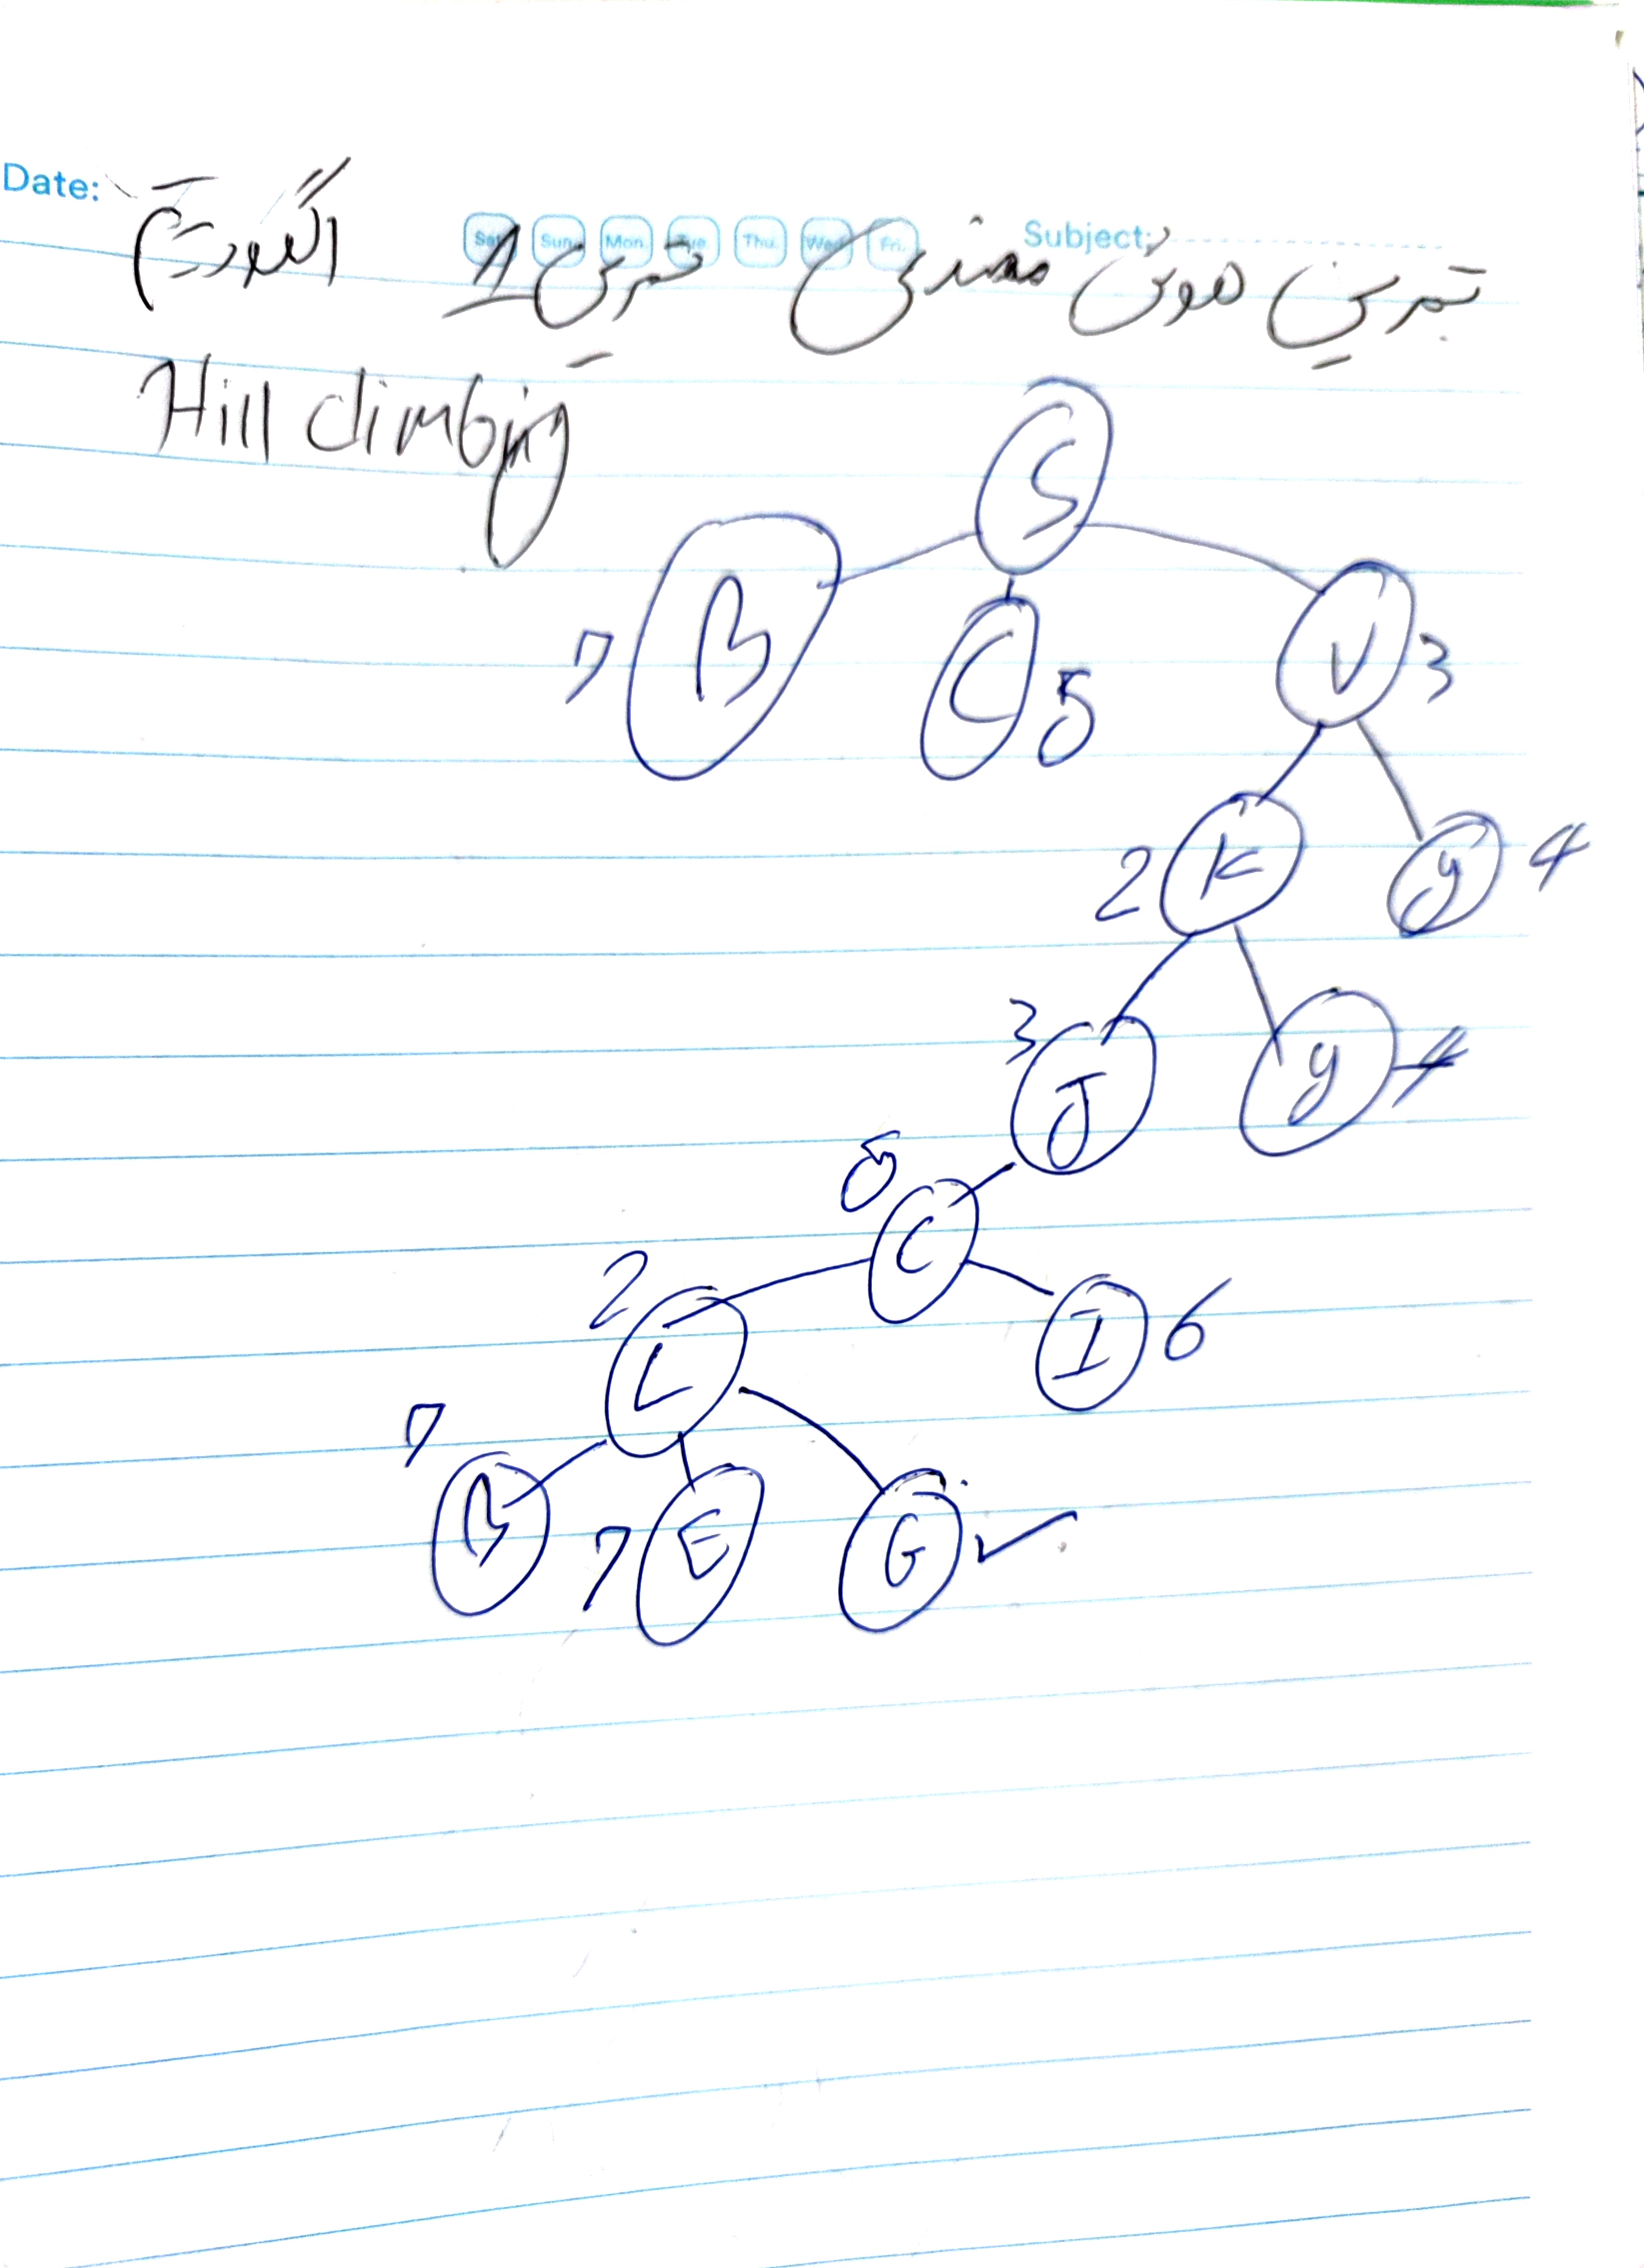 Date: Sat. Sun. Mon. Tue. Thu. Wed. Fri. Subject:
تمرین هوش مصنوعی تمرین 1 الگوریتم
Hill climbing
S
7 B C 5 V 3
2 K y 4
3 J y 4
5 C
2 L I 6
7 B 7 E G ✓